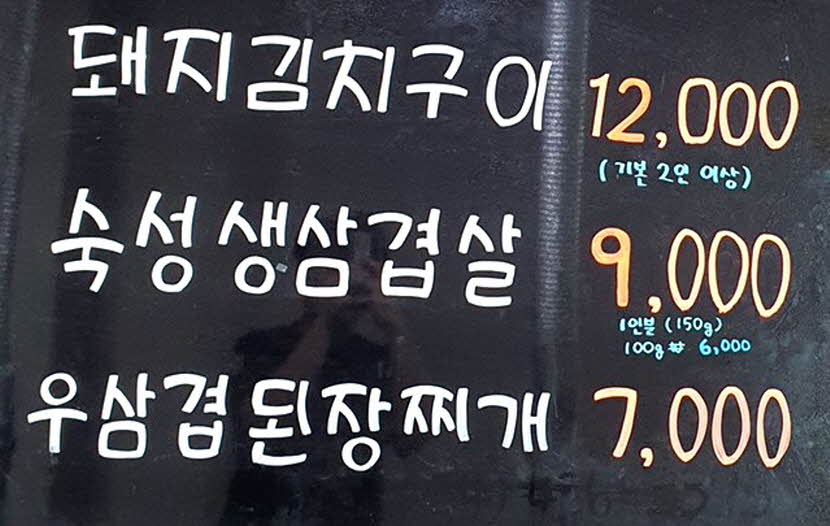 돼지김치구이 12,000
(기본 2인 이상)
숙성생삼겹살 9,000
1인분 (150g)
100g ₩ 6,000
우삼겹된장찌개 7,000